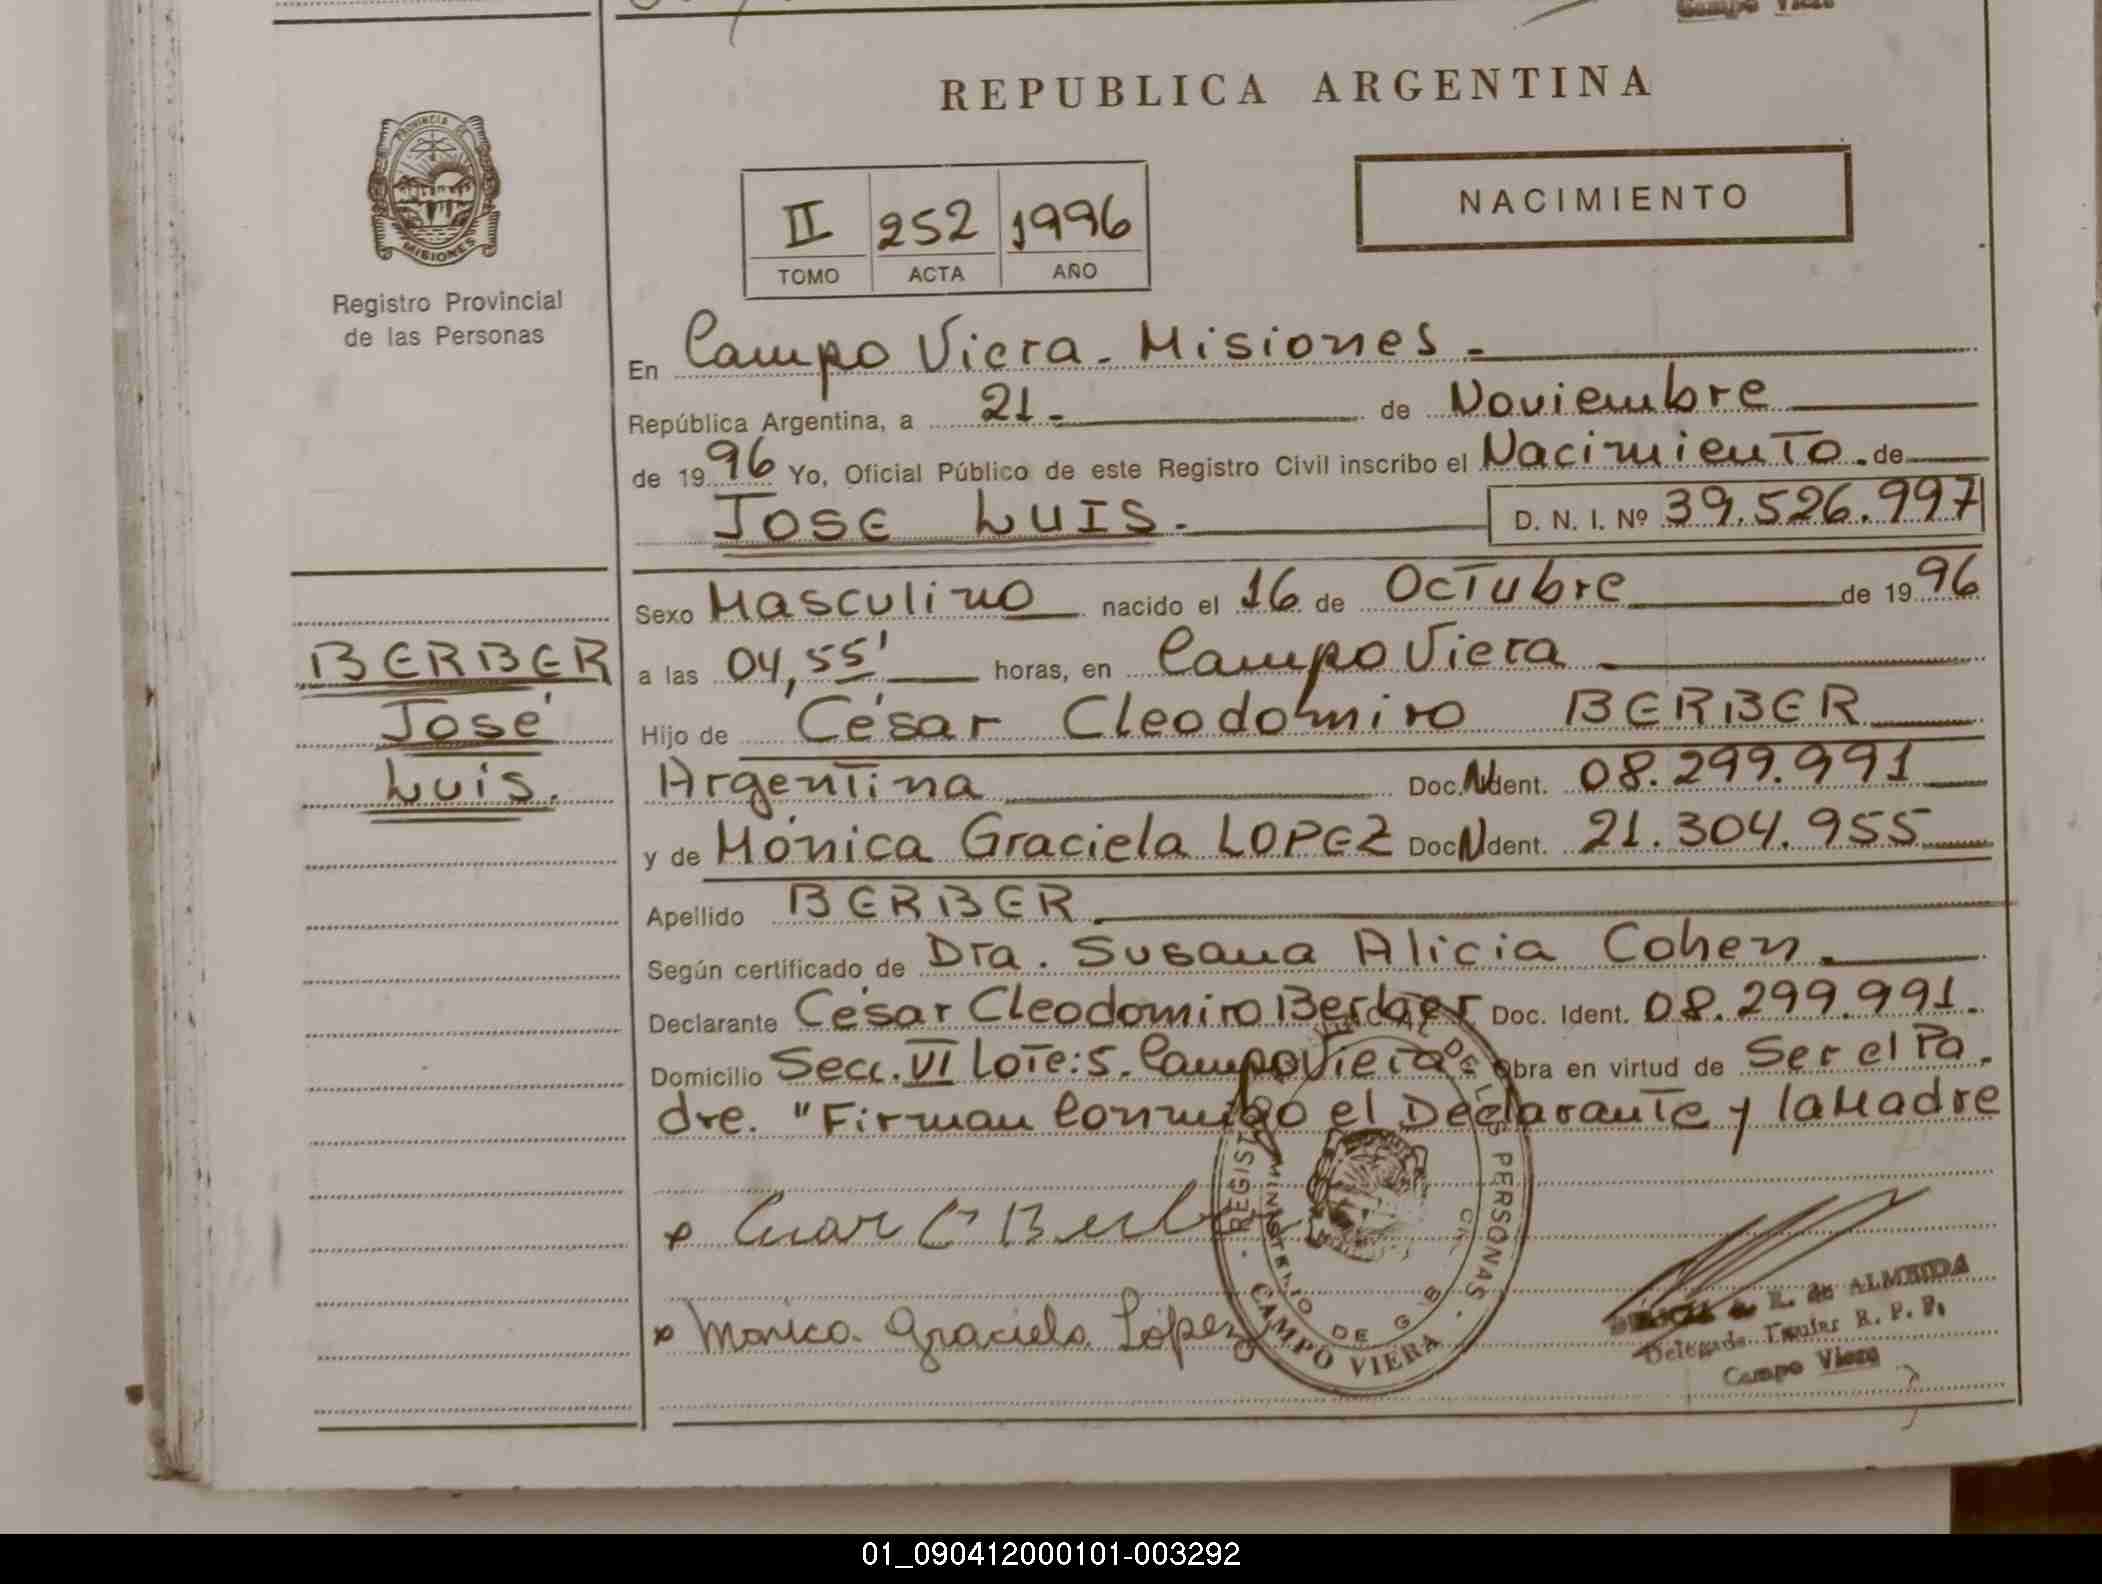 Campo Viera
REPUBLICA ARGENTINA
PROVINCIA DE
MISIONES
II 252 1996
TOMO ACTA AÑO
NACIMIENTO
Registro Provincial
de las Personas
En Campo Viera - Misiones -
República Argentina, a 21 - de Noviembre
de 1996 Yo, Oficial Público de este Registro Civil inscribo el Nacimiento . de
JOSE LUIS . D. N. I. Nº 39.526.997
Sexo Masculino nacido el 16 de Octubre de 1996
BERBER
José
Luis.
a las 04,55' horas, en Campo Viera
Hijo de César Cleodomiro BERBER
Argentina Doc. N Ident. 08.299.991
y de Mónica Graciela LOPEZ Doc N Ident. 21.304.955
Apellido BERBER
Según certificado de Dra. Susana Alicia Cohen.
Declarante César Cleodomiro Berber Doc. Ident. 08.299.991.
Domicilio Secc. VI Lote: 5. Campo Viera. Obra en virtud de Ser el Pa.
dre. "Firman Conmigo el Declarante y la Madre
Monica Graciela López
DE LAS PERSONAS
MINISTERIO DE
CAMPO VIERA
E. de ALMEIDA
Delegada Titular R. P. P.
Campo Viera
01_090412000101-003292